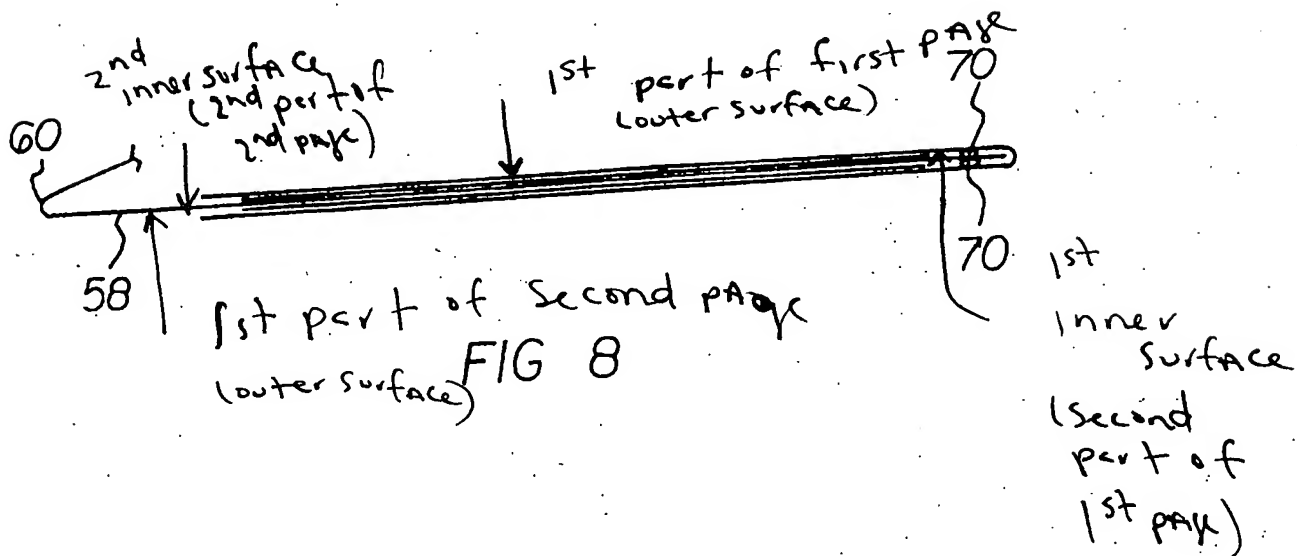 2nd
inner surface
(2nd part of
2nd page)
1st part of first page
(outer surface)
70
60
58
70
1st part of second page
(outer surface)
FIG 8
1st
inner
surface
(second
part of
1st page)